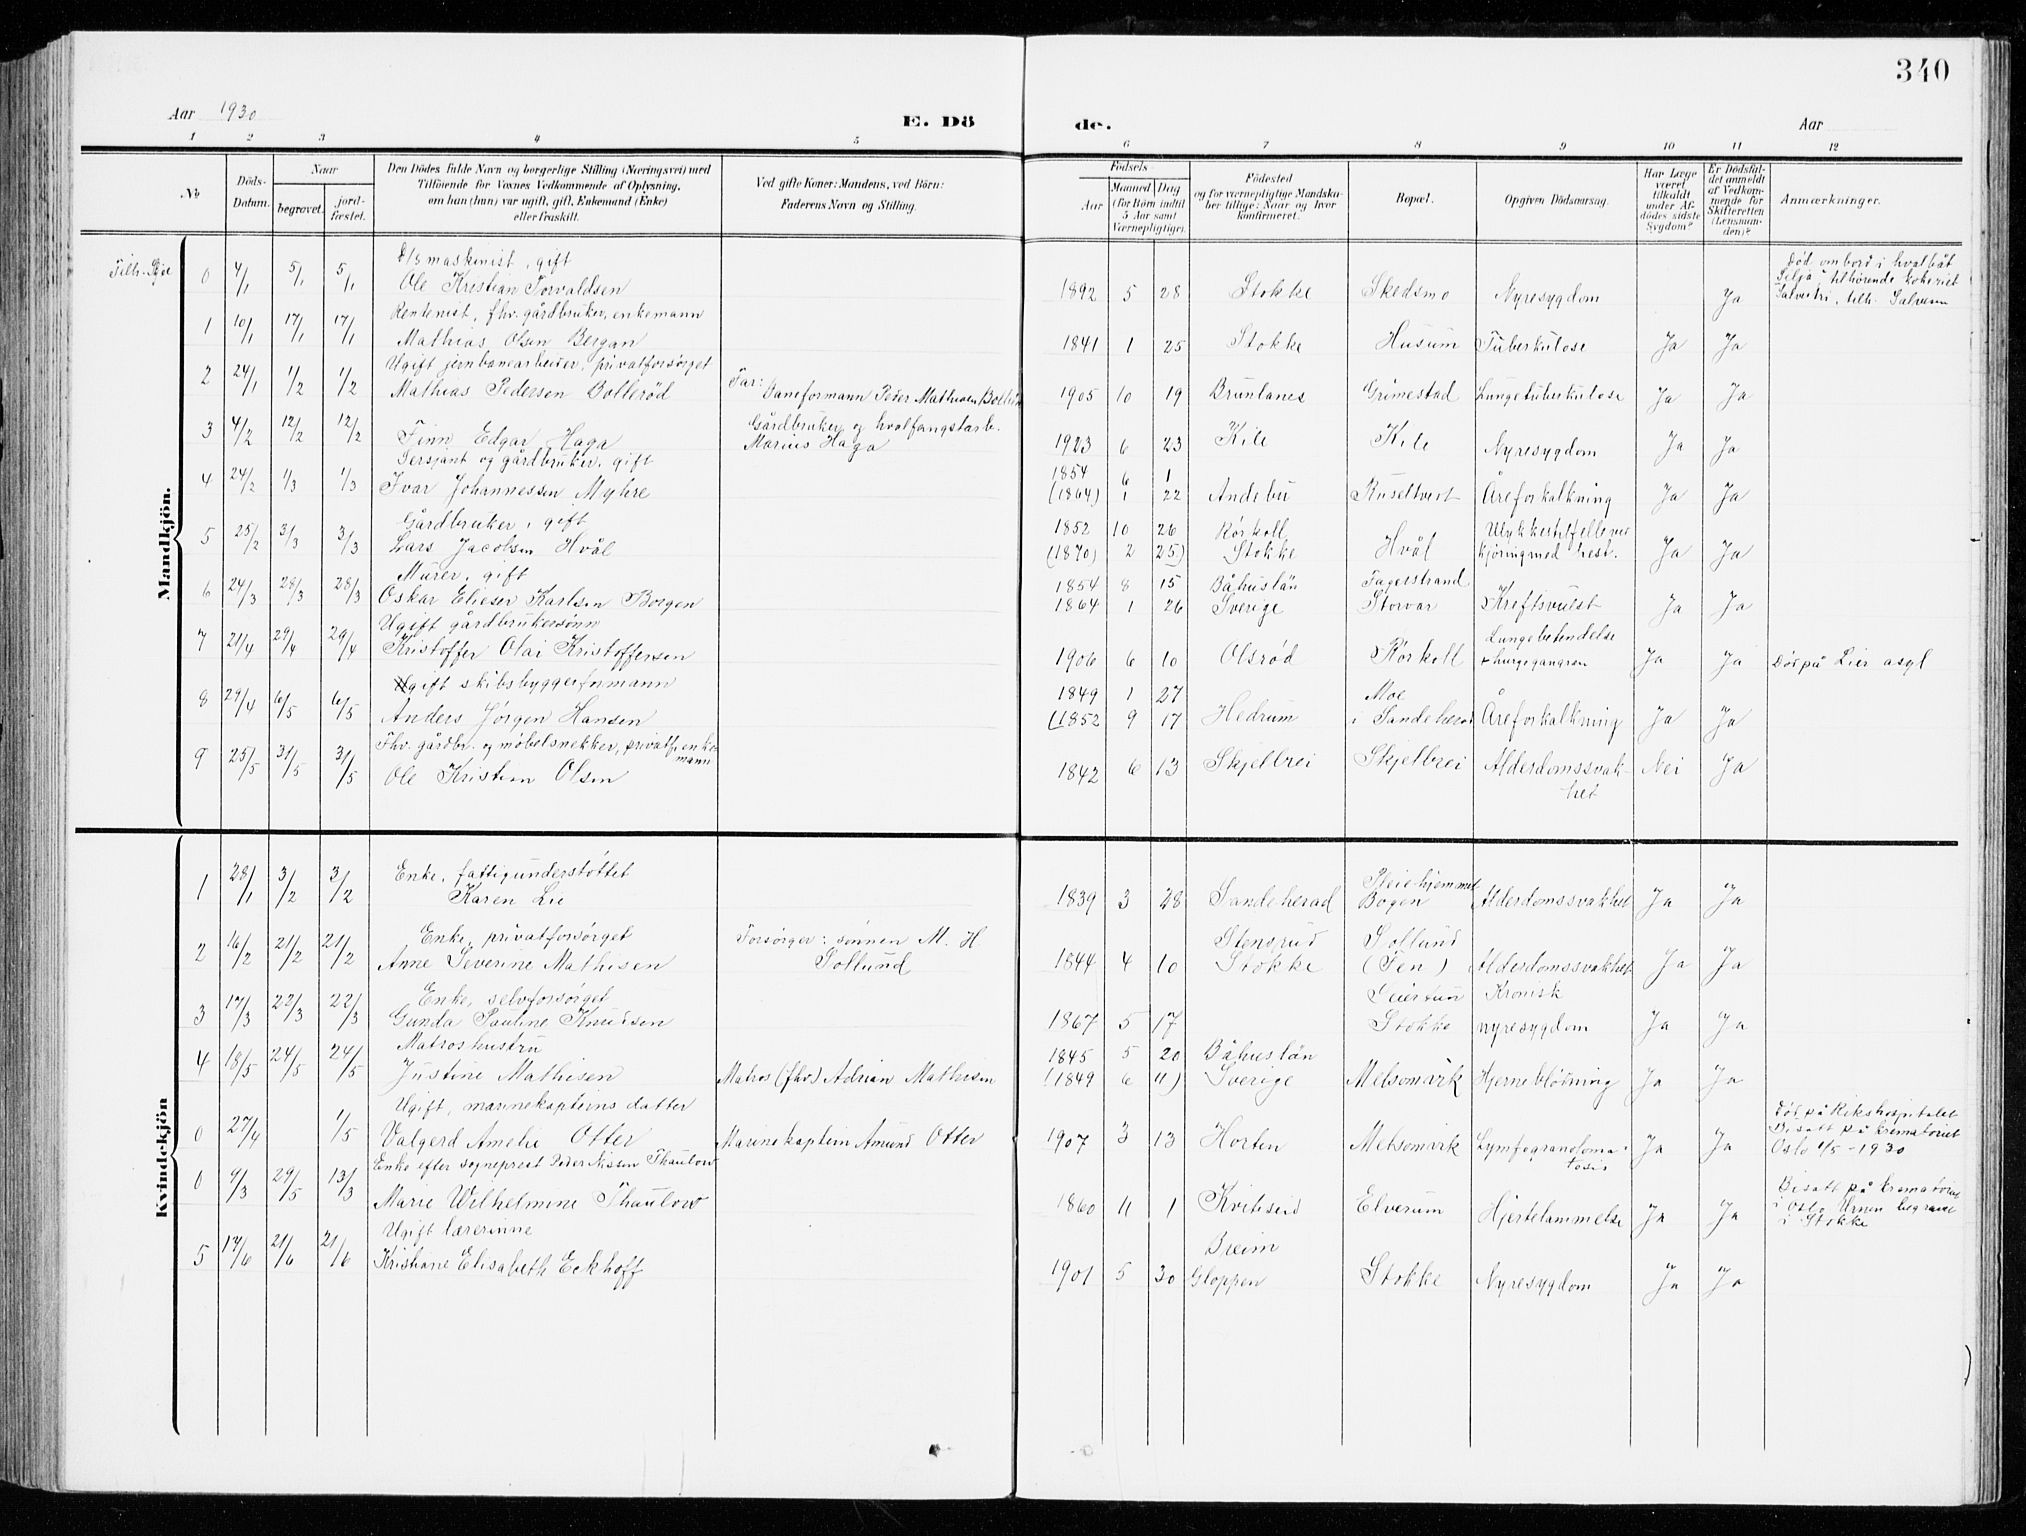 340
Aar 1930 E. Dö de. Aar
1 2 3 4 5 6 7 8 9 10 11 12
№
Döds-Datum.
Naar
begravet.
jord-fæstet.
Den Dödes fulde Navn og borgerlige Stilling (Næringsvei) med
Tilföiende for Voxnes Vedkommende af Oplysning,
om han (hun) var ugift, gift, Enkemand (Enke)
eller fraskilt.
Ved gifte Koner: Mandens, ved Börn:
Faderens Navn og Stilling.
Födsels-
Aar
Maaned Dag
(for Börn indtil
5 Aar samt
Værnepligtige).
Födested
og for værnepligtige Mandska-
ber tillige: Naar og hvor
konfirmeret.
Bopæl.
Opgiven Dödsaarsag.
Har Læge
været
tilkaldt
under Af-
dödes sidste
Sygdom?
Er Dödsfal-
det anmeldt
af Vedkom-
mende for
Skifteretten
(Lensman-
den)?
Anmærkninger.
Mandkjön.
0 4/1 5/1 5/1 maskinist, gift
Ole Kristian Torvaldsen 1892 5 28 Stokke Skedsmo Nyresygdom Ja
Död ombord i hvalbåt
tilhørende kokeriet
Salvestri, tilh. Salvesen
1 10/1 17/1 17/1 Rentenist, fhv. gårdbruker, enkemann
Mathias Olsen Bergan 1841 1 25 Stokke Husum Tuberkulose Ja Ja
2 24/1 1/2 1/2 Ugift jernbanearbeider, privatforsørget
Mathias Pedersen Bollerød Far: Baneformann Peder Mathisen 1905 10 19 Brunlanes Grimestad Lungetuberkulose Ja Ja
3 4/2 12/2 12/2 Finn Edgar Haga Gårdbruker og hvalfangstarb.
Marius Haga 1923 6 23 Kile Kile Nyresygdom Ja Ja
4 24/2 1/3 1/3 Sersjant og gårdbruker, gift 1854 6 1
Ivar Johannessen Myhre (1864) 1 22 Andebu Åreforkalkning Ja Ja
5 25/2 3/3 3/3 Gårdbruker, gift 1852 10 26 Rørkoll Ulykkestilfelle ved
Lars Jacobsen Hvål (1870) 2 25) Stokke Hvål kjöring med hest. Ja Ja
6 24/3 28/3 28/3 Murer, gift 1854 8 15 Båhuslän Fagerstrand
Oskar Elieser Karlsen Borgen 1864 1 26 Sverige Storvar Kreftsvulst Ja Ja
7 21/4 29/4 29/4 Ugift gårdbrukersønn Lungebetendelse
Kristoffer Olai Kristoffersen 1906 6 10 Olsrød Rörkoll Ja Ja Död på Lier asyl
8 29/4 6/5 6/5 gift skibsbyggerformann 1849 1 27 Moe
Anders Jörgen Hansen (1852 9 17 Hedrum i Sandeherad Åreforkalkning Ja Ja
9 25/5 31/5 31/5 Fhv. gårdbr. og møbelsnekker, privatf, enke-
mann
Ole Kristian Olsen 1842 6 13 Skjelbrei Skjelbrei Alderdomssvak-
het Nei Ja
Kvindekjön
1 28/1 3/2 3/2 Enke, fattigunderstöttet Pleiehjemmet
Karen Lie 1839 3 28 Sandeherad Bogen Alderdomssvakhet Ja Ja
2 16/2 21/2 21/2 Enke, privatforsørget Forsörger: sønnen M. H. Stensrud Sollund
Anne Severine Mathisen Sollund 1844 4 10 Stokke (Fen) Alderdomssvakhet Ja Ja
3 17/3 22/3 22/3 Enke, selvforsörget Geirtun Kronisk
Gunda Pauline Knudsen 1867 5 17 Stokke nyresygdom Ja Ja
4 18/5 24/5 24/5 Matroshustru 1845 5 20 Båhuslän
Justine Mathisen Matros (fhv) Adrian Mathisen (1849 6 11) Sverige Melsomvik Hjerneblödning Ja Ja
0 27/4 1/5 Ugift, marinekapteins datter
Valgerd Amelie Otter Marinekaptein Amund Otter 1907 3 13 Horten Melsomvik Lymfogranoloma-
tosis Ja Ja
Död på Rikshospitalet
Bisatt på krematoriet
Oslo 1/5-1930
0 9/3 29/5 13/3 Enke efter sogneprest Peder Nissen Thaulow
Marie Wilhelmine Thaulow 1860 11 1 Kviteseid Elverum Hjertelammelse Ja Ja
Bisatt på krematoriet
i Oslo Urnen begravet
i Stokke
5 14/6 21/6 21/6 Ugift lærerinne Breim
Kristiane Elisabeth Eckhoff 1901 5 30 Gloppen Stokke Nyresygdom Ja Ja